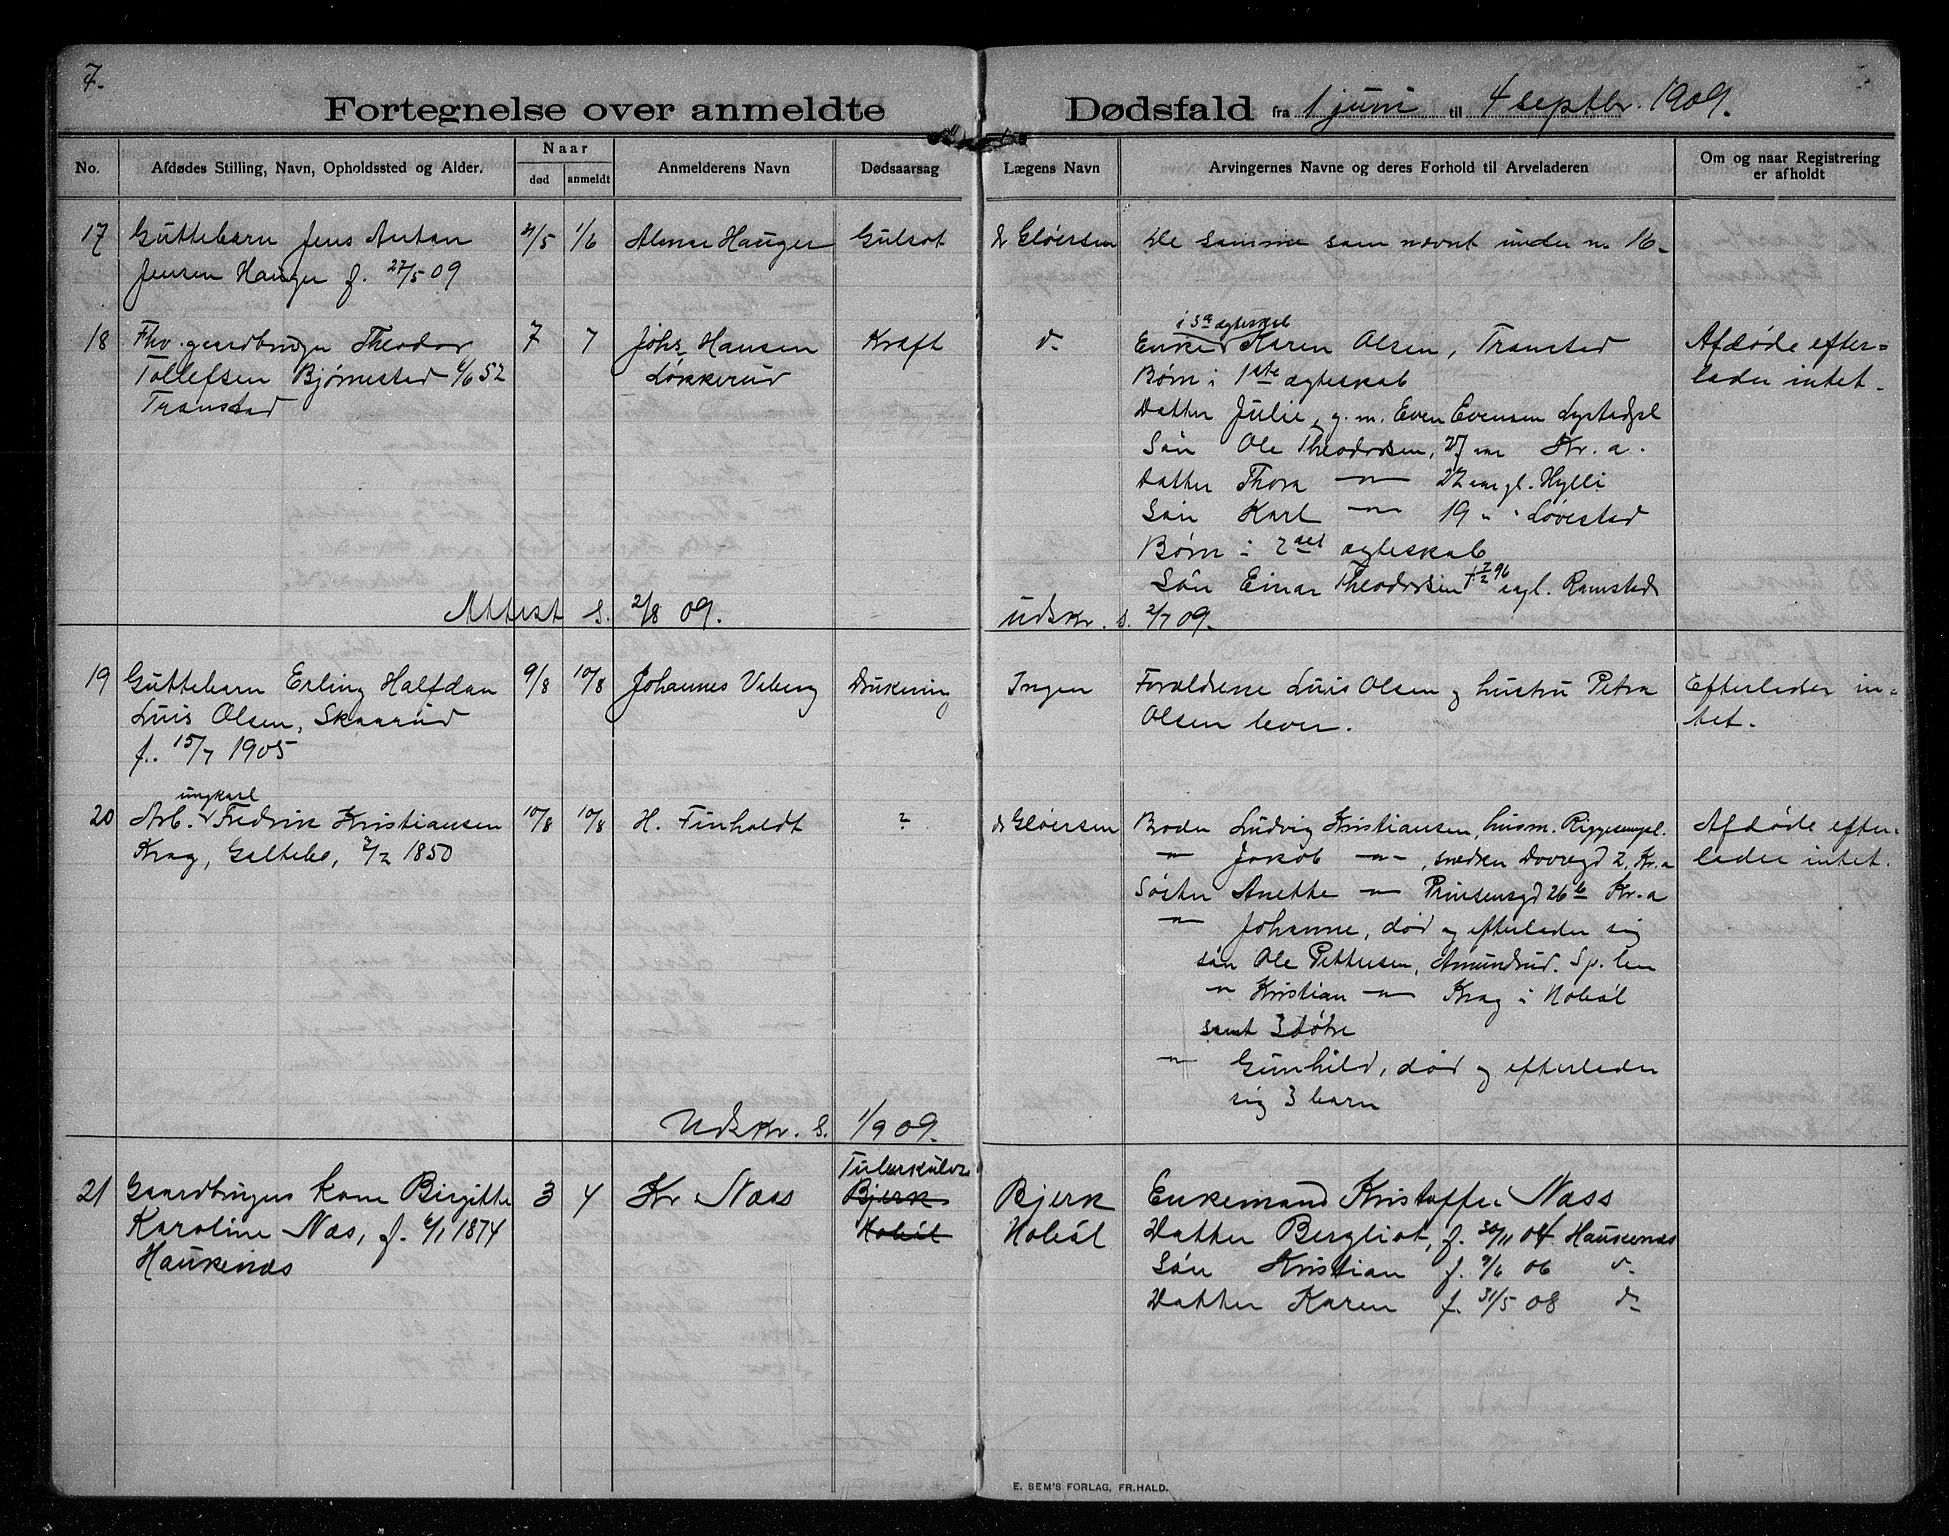 7.
Fortegnelse over anmeldte Dødsfald fra 1 juni til 4 septbr. 1909.
No. Afdødes Stilling, Navn, Opholdssted og Alder. Naar død anmeldt Anmelderens Navn Dødsaarsag Lægens Navn Arvingernes Navne og deres Forhold til Arveladeren Om og naar Registrering er afholdt
17 Guttebarn Jens Anton 31/5 1/6 Hauger Gulsot dr Gløersen De samme som nævnt under n. 16-
Jensen Hauger f. 27/5 09
i 3die ægteskab
18 Fhv. gaardbruger Theodor 7 7 Johs. Hansen Kræft do Enke Karen Olsen, Transtad Afdøde efter=
Tollefsen Bjørnestad 6/6 52 Løkkerud Børn i 1ste ægteskab lader intet.
Transtad Datter Julie, g. m. Even Evensen
Søn Ole Theodorsen, 27 aar Kr.a.
Datter Thora —"— 22 aar gl. Hylli
Søn Karl —"— 19 " " Løvestad
Børn i 2det ægteskab
Søn Einar Theodorsen gl. Ramstad
Attest s. 2/8 09. Udskr. s. 2/7 09.
19 Guttebarn Erling Halfdan 9/8 10/8 Johannes Viberg Drukning Ingen Forældrene Luis Olsen og hustru Petra Efterlader in=
Luis Olsen, Skaarud Olsen lever. tet.
f. 15/7 1905
ungkarl
20 Arb. Fredrik Kristiansen 10/8 10/8 H. Finholdt ? dr Gløersen Broder Ludvig Kristiansen, husm. Afdøde efter=
Krag, Galtebo, 2/2 1850 —"— Jakob —"—, snedker Dovregd 2, Kr.a lader intet.
Søster Anette —"— Prinsensgd 26 b Kr.a
—"— Johanne, død og efterlader sig
søn Ole Pettersen, Amundrud. Sp.
—"— Kristian —"— Krag i Hobøl
samt 3 døtre
—"— Gunhild, død og efterlader
sig 3 barn
Udskr. s. 1/9 09.
21 Gaardbrugers kone Birgitte 3 4 Kr Næss Tuberkulose Bjerk Enkemand Kristoffer Næss
Karoline Næs, f. 6/1 1874 Bjerk Hobøl Datter Bergliot, f. 30/11 04 Haukenæs
Haukenæs Hobøl Søn Kristian f. 9/6 06 do
Datter Karen f. 31/5 08 do
E. SEM'S FORLAG, FR.HALD.